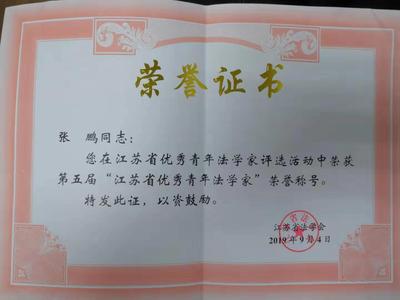 荣誉证书
张 鹏同志：
您在江苏省优秀青年法学家评选活动中荣获
第五届“江苏省优秀青年法学家”荣誉称号。
特发此证，以资鼓励。
江苏省法学会
2019年9月4日